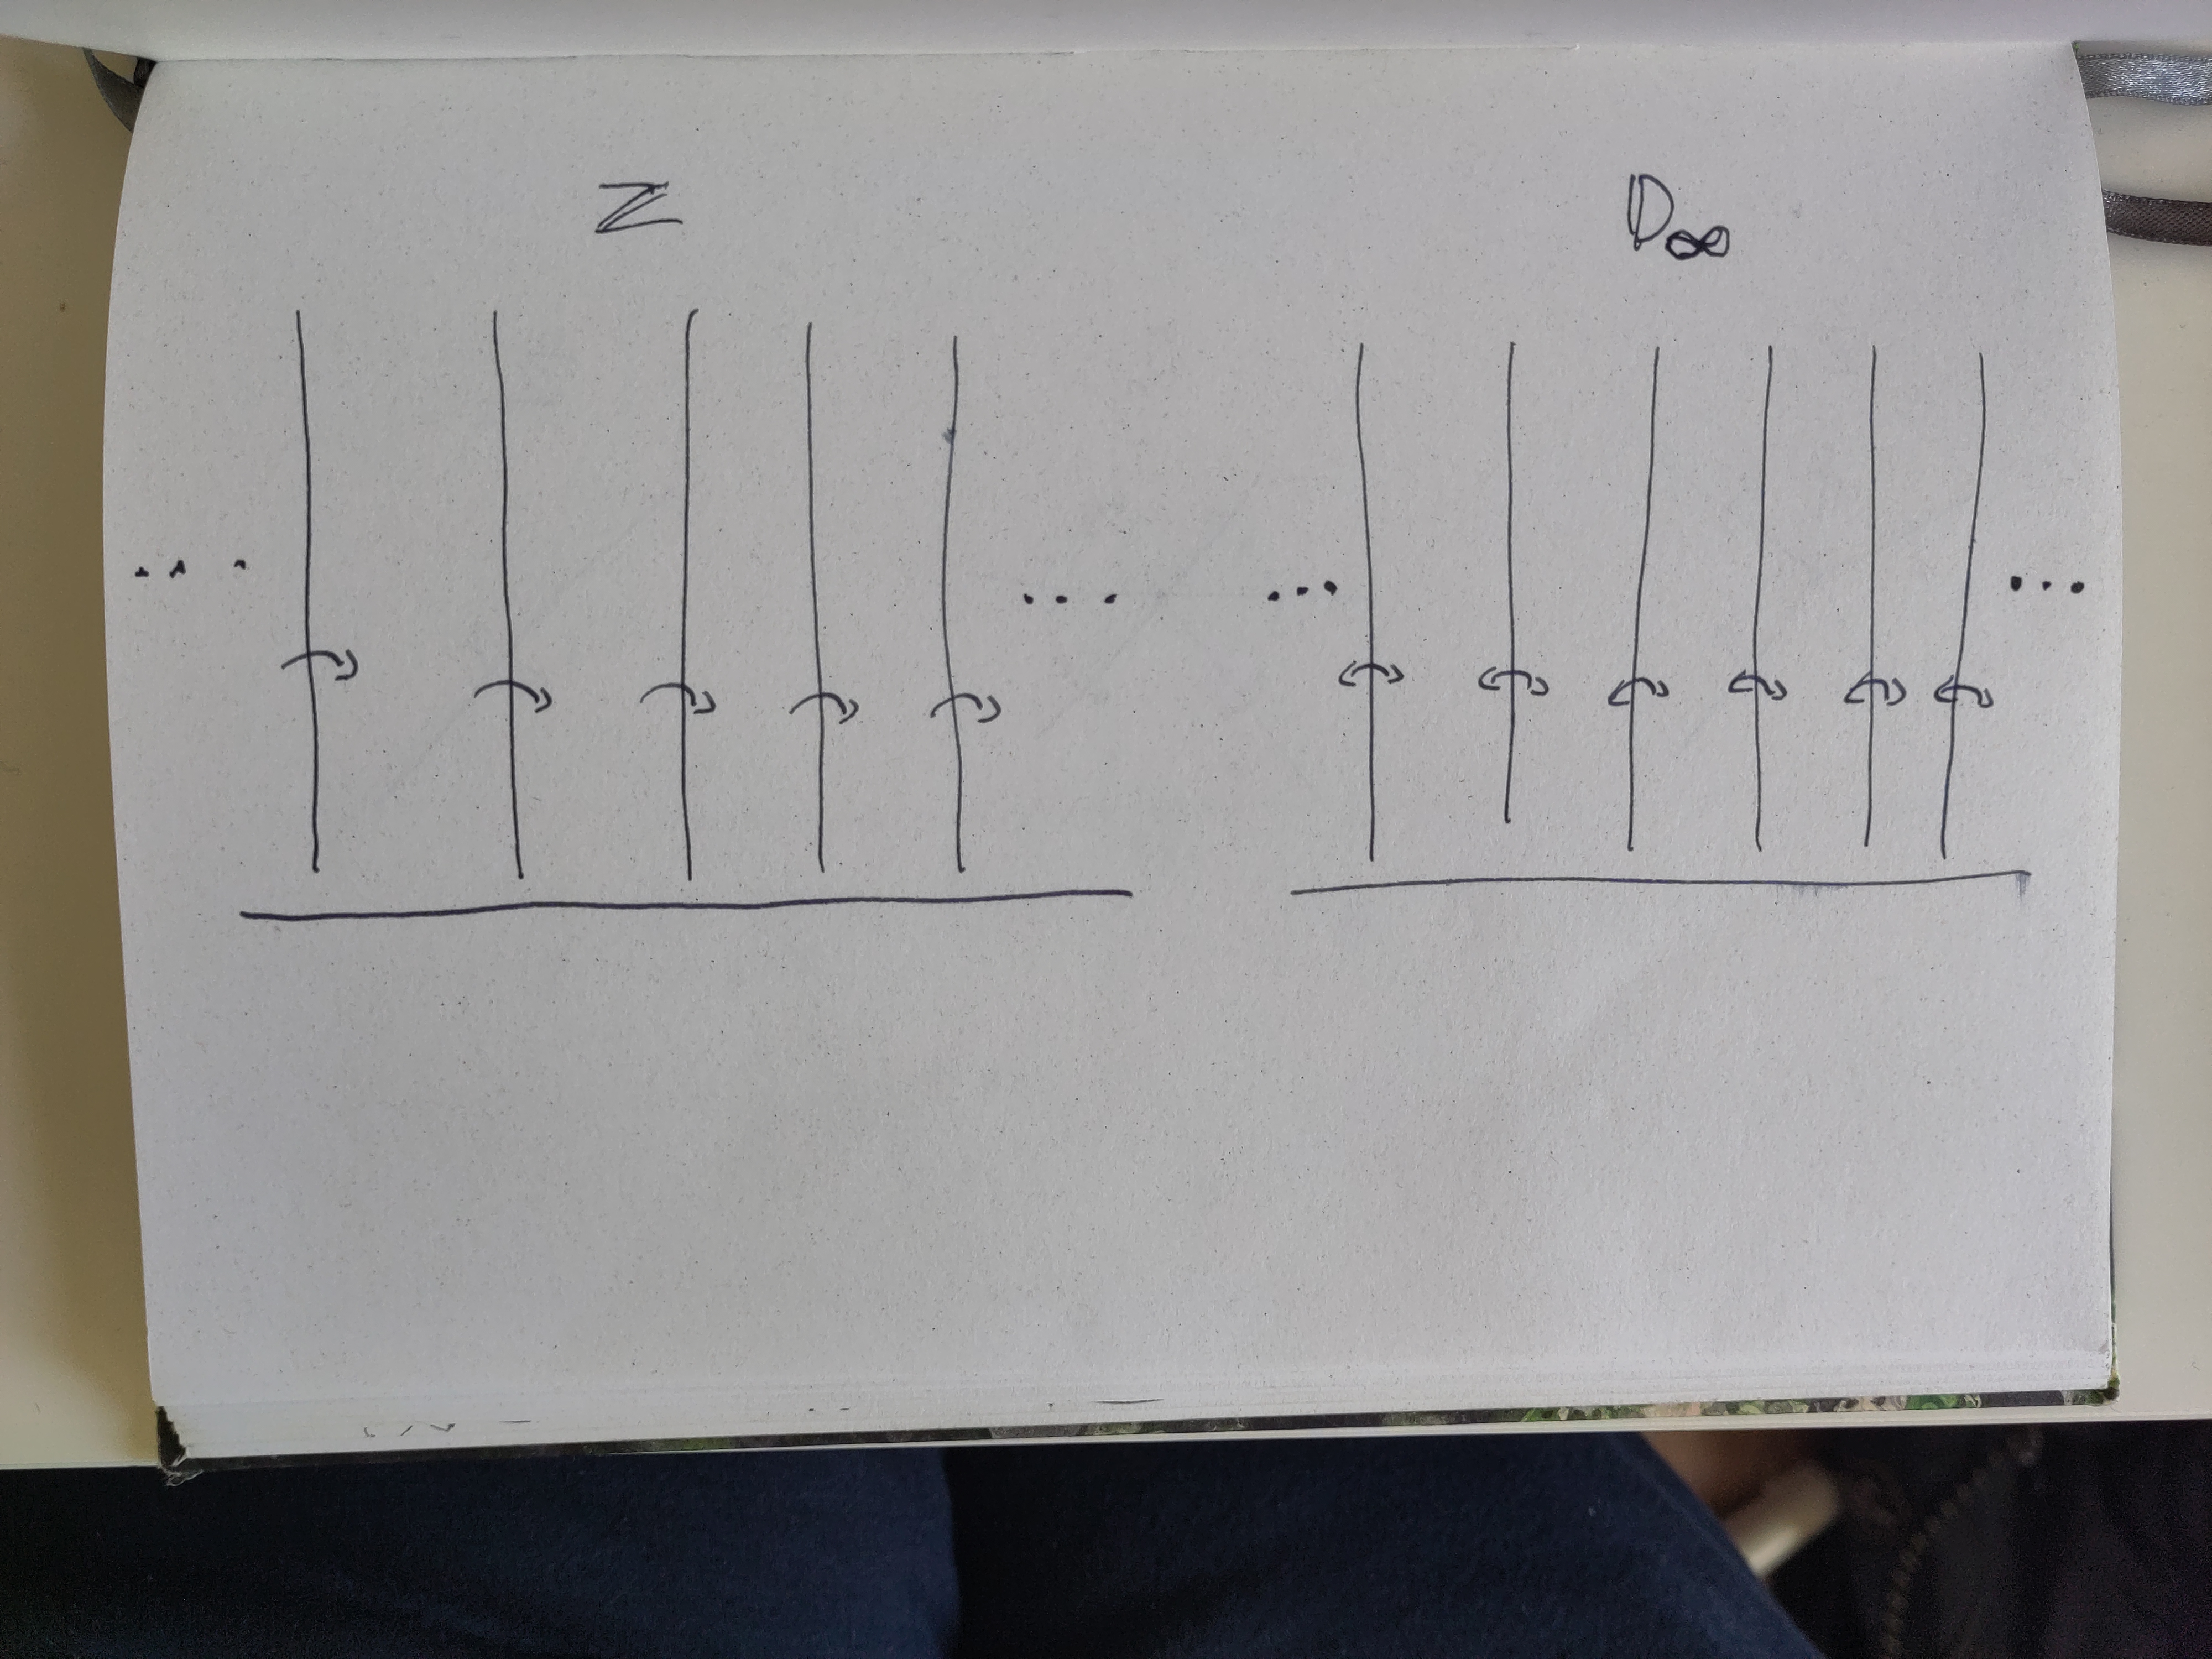 ℤ D∞
... ... ... ...